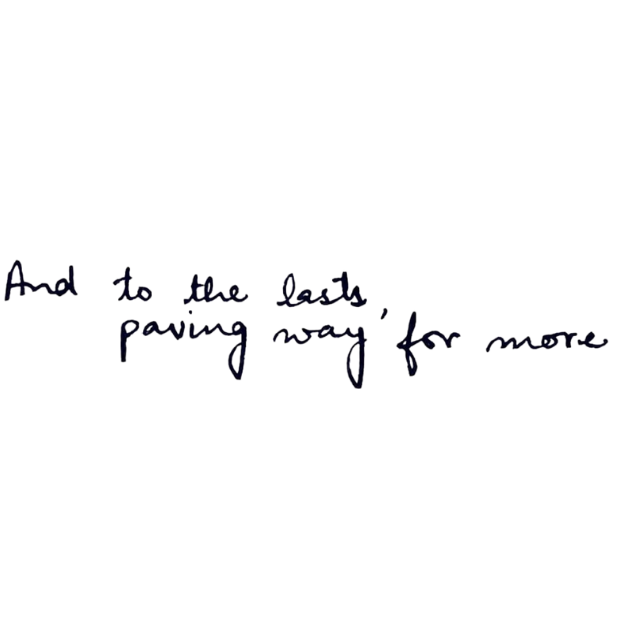 And to the lasts,
paving way for more